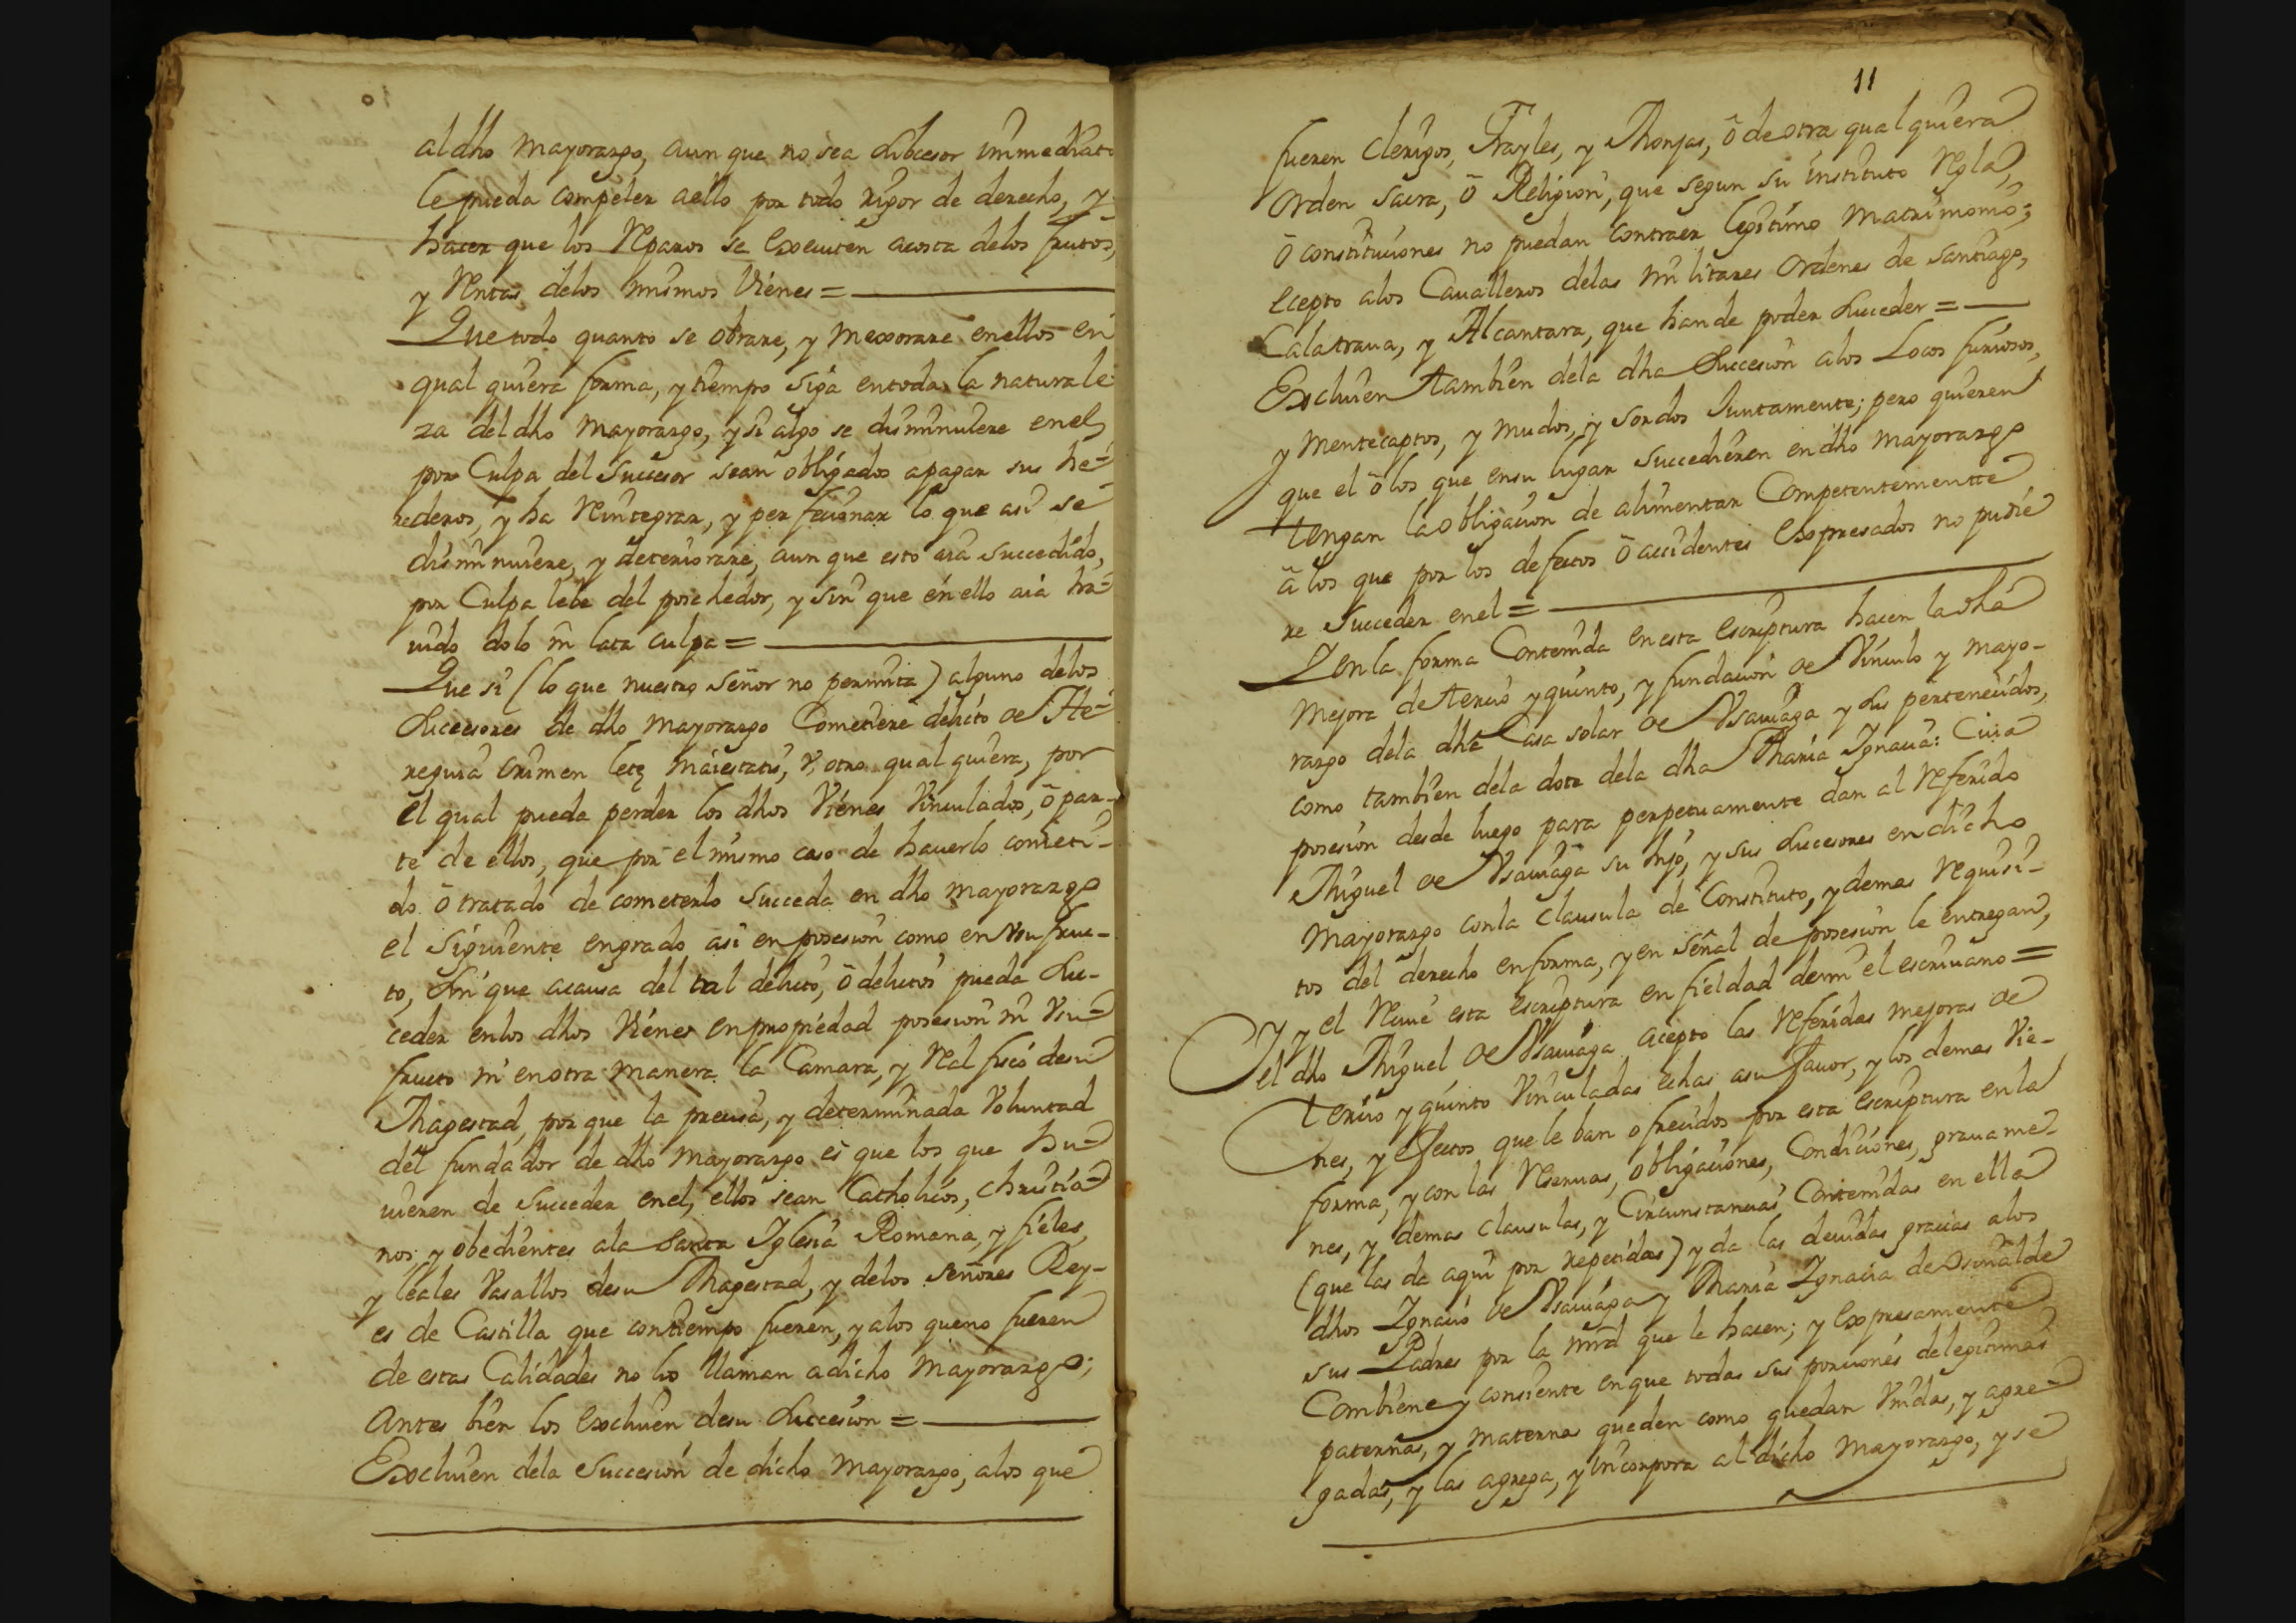 al dho mayorazgo, aun que no sea subcesor immediato
le pueda compeler aello por todo rigor de derecho, y
hacer que los Reparos se executen acosta delos frutos,
y Rentas delos mismos Vienes =
Que todo quanto se obrare, y mexorare enellos en
qual quiera forma, y tiempo siga entoda la naturale-
za del dho mayorazgo, y si algo se disminuiere enel,
por Culpa del Succesor sean obligados apagar sus he-
rederos, y ha Reintegrar, y perfecionar lo que asi se
disminuiere, y deteriorare, aun que esto aia succedido,
por Culpa lebe del posehedor, y sin que en ello aia ha-
uido dolo ni lata culpa =
Que si (lo que nuestro Señor no permita) alguno delos
Succesores de dho mayorazgo Cometiere delicto de He-
regia crimen lete Maiestatis, V, otro qual quiera, por
el qual pueda perder los dhos Vienes Vinculados, ô par-
te de ellos, que por el mismo caso de hauerlo cometi-
do ô tratado de cometerlo succeda en dho mayorazgo
el siguiente engrado asi en posesion como en Vsufruc-
to, sin que acausa del tal delicto, ô delictos pueda su-
ceder enlos dhos Vienes enpropiedad posesion ni Vsu-
fructo ni enotra manera la Camara, y Real fisco desu
Magestad, por que la precisa, y determinada Voluntad
del fundador de dho mayorazgo es que los que hu-
uieren de succeder enel, ellos sean Catholicos, christia-
nos, y obedientes ala Santa Iglesia Romana, y fieles,
y leales Vasallos desu Magestad, y delos señores Rey-
es de Castilla que contiempo fueren, y alos queno fueren
de estas Calidades no los llaman adicho mayorazgo;
antes bien los excluien desu succesion =
Excluien dela Succesion de dicho mayorazgo, alos que
11
fueren clerigos, Frayles, y Monjas, ô de otra qual quiera
orden sacra, ô Religion, que segun su instituto Regla,
ô constituciones no puedan contraer legitimo matrimonio;
ecepto alos Caualleros delas militares ordenes de santiago,
Calatraua, y Alcantara, que han de poder succeder =
Excluien tambien dela dha Succesion alos Locos furiosos,
y mentecaptos, y mudos, y sordos Juntamente; pero quieren
que el ô los que ensu lugar succedieren en dho mayorazgo
tengan la obligacion de alimentar Competentemente
â los que por los defectos ô accidentes expresados no pudie
re succeder enel =
Y en la forma Contenida en esta escriptura hacen la dha
mejora de tercio y quinto, y fundacion de Vinculo y mayo-
razgo dela dha Casa solar de Vsauiaga y sus pertenecidos,
como tambien dela dote dela dha Maria Ignacia: Cuia
posesion desde luego para perpetuamente dan al Referido
Miguel de Vsauiaga su hijo, y sus succesores endicho
mayorazgo conla clausula de Constituto, y demas Requisi-
tos del derecho enforma, y en señal de posesion le entregan,
y el Reciue esta escriptura en fieldad demi el escriuano =
Y el dho Miguel de Vsauiaga acepto las Referidas mejoras de
tercio y quinto Vinculadas echas asu fauor, y los demas Vie-
nes, y efectos que le ban ofrecidos por esta escriptura en la
forma, y con las Reseruas, obligaciones, Condiciones, grauame-
nes, y demas clausulas, y Circunstancias Contenidas en ella
(que las da aqui por repetidas) y da las deuidas gracias alos
dhos Ignacio de Vsauiaga y Maria Ignacia de Osinalde
sus Padres por la mrd que le hacen; y expresamente
Combiene y consiente en que todas sus porciones delegitimas
paternas, y maternas queden como quedan Vnidas, y agre-
gadas, y las agrega, y incorpora al dicho mayorazgo, y se